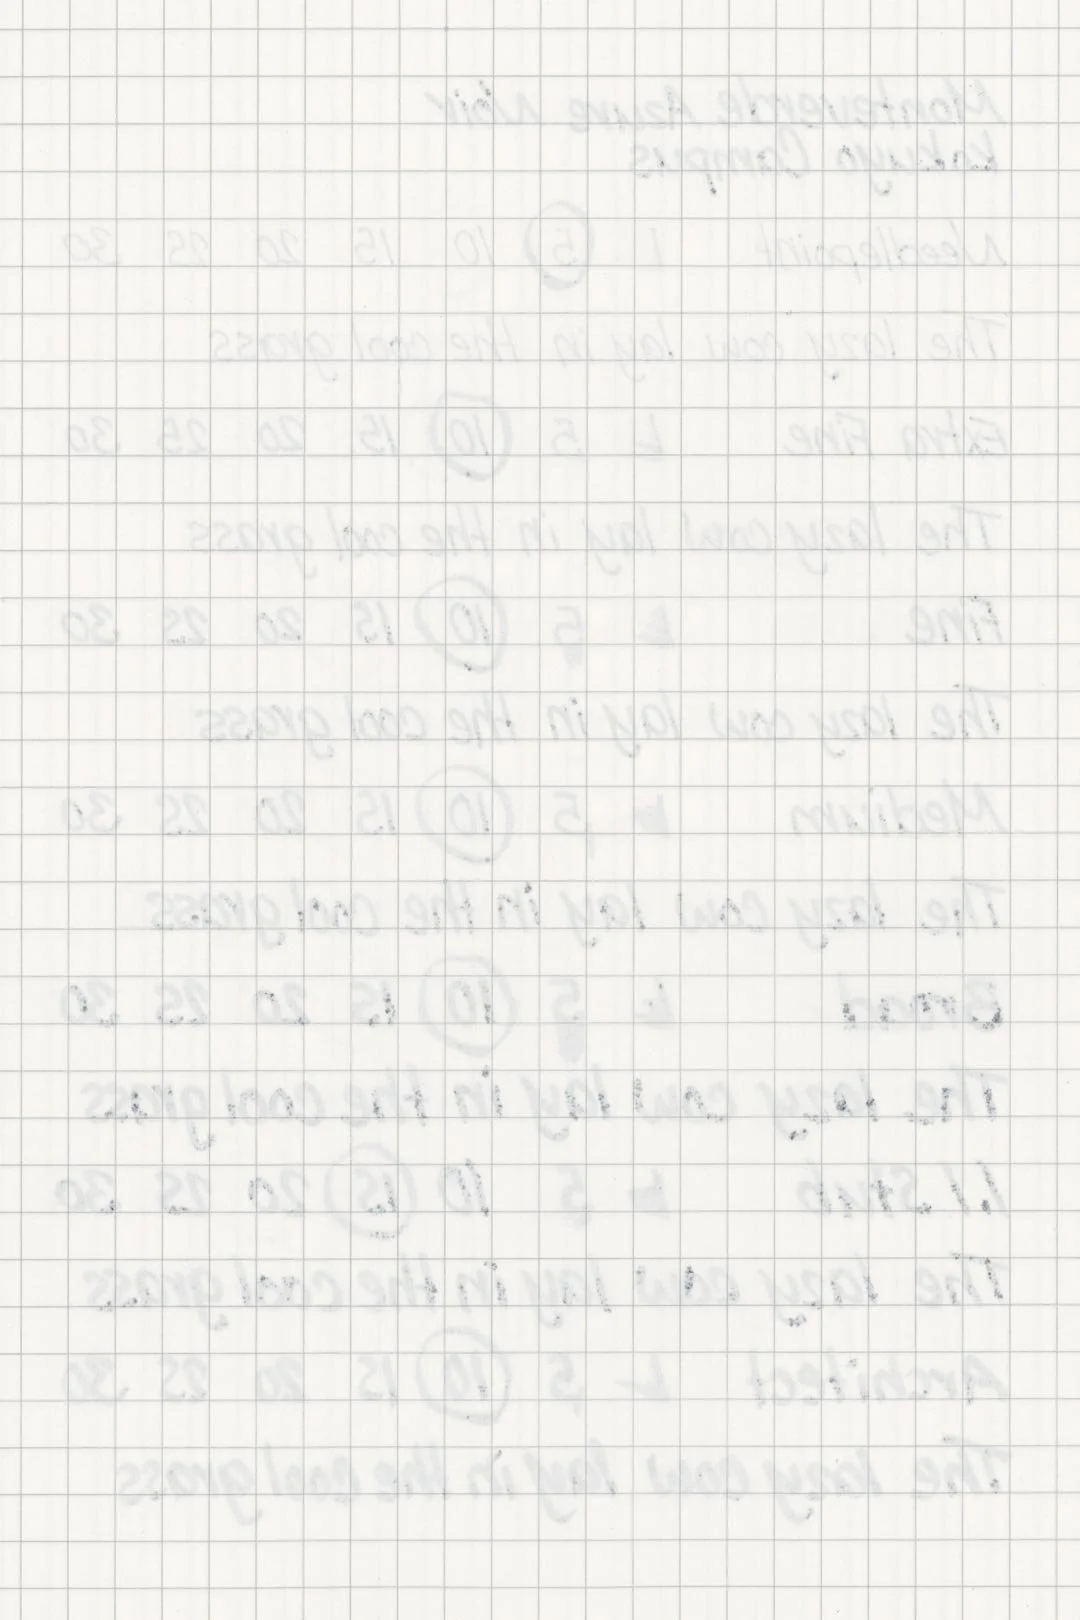 Monteverde Azure Noir
Kokuyo Campus
Needlepoint 1 5 10 15 20 25 30
The lazy cow lay in the cool grass
Extra Fine 1 5 10 15 20 25 30
The lazy cow lay in the cool grass
Fine 1 5 10 15 20 25 30
The lazy cow lay in the cool grass
Medium 1 5 10 15 20 25 30
The lazy cow lay in the cool grass
Broad 1 5 10 15 20 25 30
The lazy cow lay in the cool grass
1.1 Stub 1 5 10 15 20 25 30
The lazy cow lay in the cool grass
Architect 1 5 10 15 20 25 30
The lazy cow lay in the cool grass